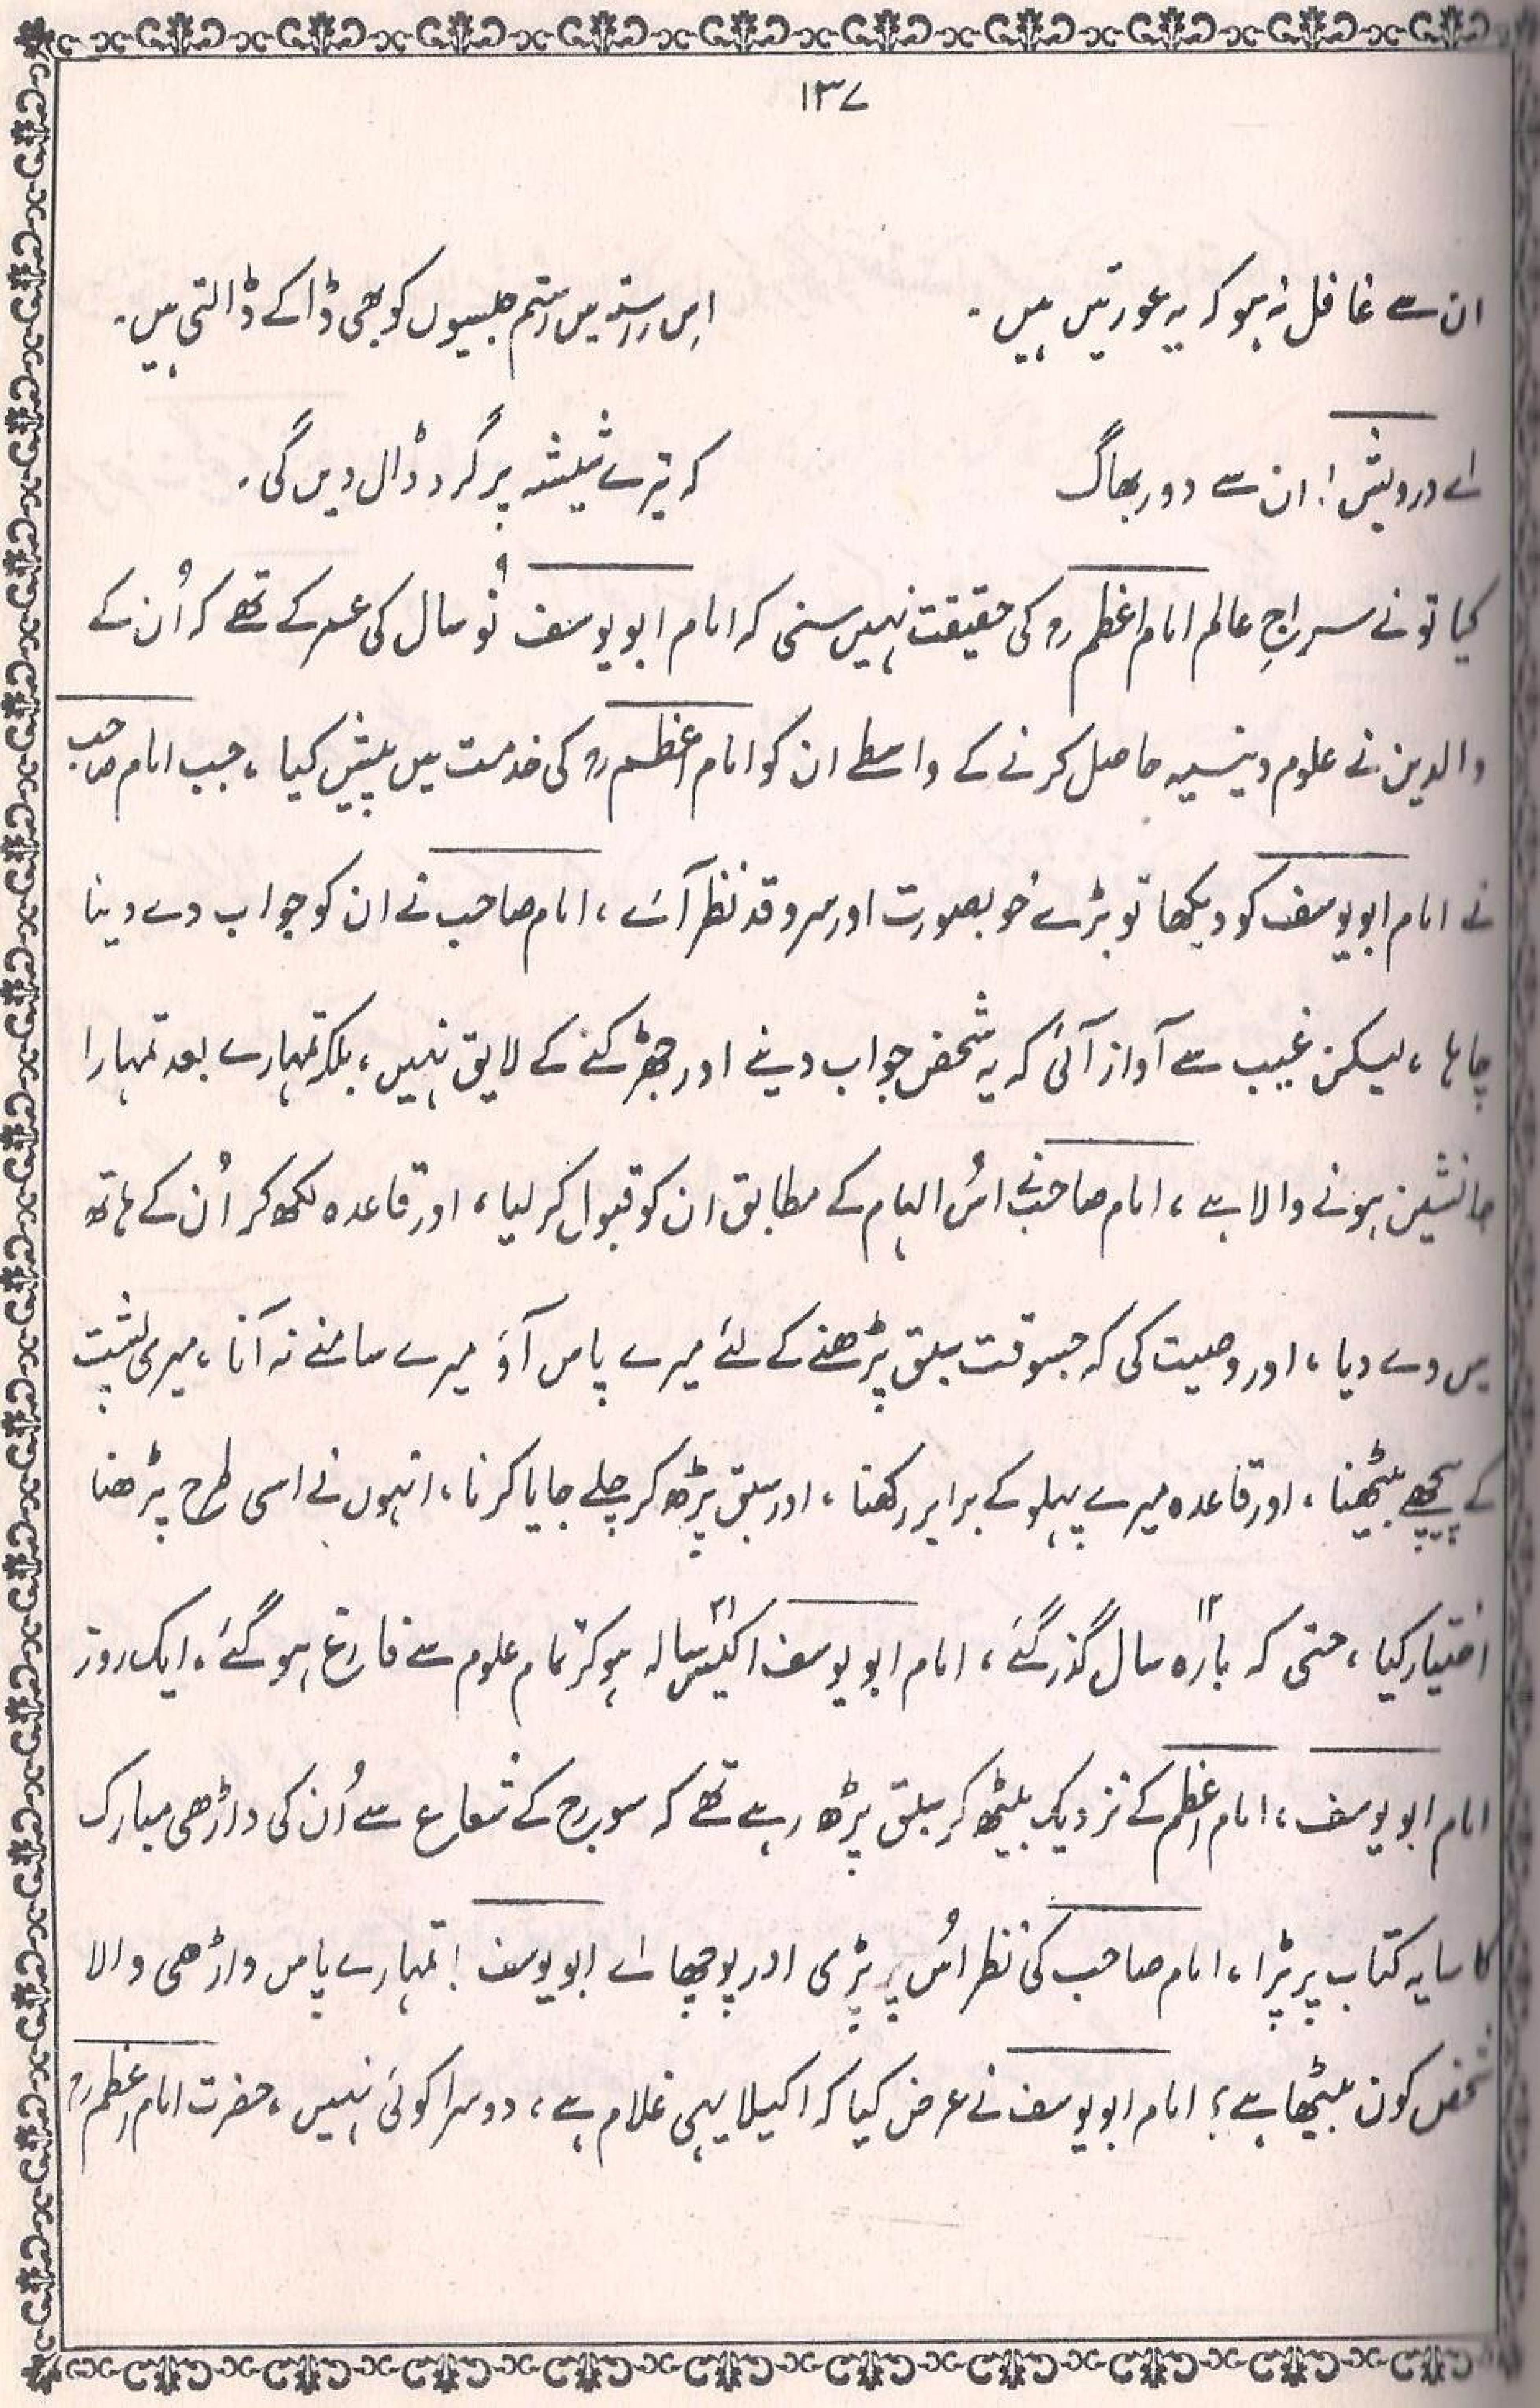 ۱۳۷
ان سے غافل نہ ہو کہ یہ عورتیں ہیں ۔ اِس رستہ میں رستم جیسوں کو بھی ڈاکے ڈالتی ہیں ۔
اے درویش! ان سے دور بھاگ کہ تیرے شیشہ پر گرد ڈال دیں گی ۔
کیا تو نے سراجِ عالم امام اعظم رح کی حقیقت نہیں سنی کہ امام ابو یوسف نُو ۹ سال کی عمر کے تھے کہ اُن کے
والدین نے علوم دینیہ حاصل کرنے کے واسطے ان کو امام اعظم رح کی خدمت میں پیش کیا ، جب امام صاحب
نے امام ابو یوسف کو دیکھا تو بڑے خوبصورت اور سرو قد نظر آئے ، امام صاحب نے ان کو جواب دے دینا
چاہا ، لیکن غیب سے آواز آئی کہ یہ شخص جواب دینے اور جھڑکنے کے لایق نہیں ، بلکہ تمہارے بعد تمہارا
جانشین ہونے والا ہے ، امام صاحب نے اُس الہام کے مطابق ان کو قبول کر لیا ، اور قاعدہ لکھ کر اُن کے ہاتھ
میں دے دیا ، اور وصیت کی کہ جسوقت سبق پڑھنے کے لئے میرے پاس آؤ میرے سامنے نہ آنا ، میری پشت
کے پیچھے بیٹھنا ، اور قاعدہ میرے پہلو کے برابر رکھنا ، اور سبق پڑھ کر چلے جایا کرنا ، انہوں نے اسی طرح پڑھنا
اختیار کیا ، حتی کہ بارہ ۱۲ سال گذر گئے ، امام ابو یوسف اکیس ۲۱ سالہ ہو کر تمام علوم سے فارغ ہو گئے ۔ ایک روز
امام ابو یوسف ، امام اعظم کے نزدیک بیٹھ کر سبق پڑھ رہے تھے کہ سورج کے شعاع سے اُن کی داڑھی مبارک
کا سایہ کتاب پر پڑا ، امام صاحب کی نظر اُس پر پڑی اور پوچھا اے ابو یوسف ! تمہارے پاس داڑھی والا
شخص کون بیٹھا ہے ؟ امام ابو یوسف نے عرض کیا کہ اکیلا یہی غلام ہے ، دوسرا کوئی نہیں ، حضرت امام اعظم رح